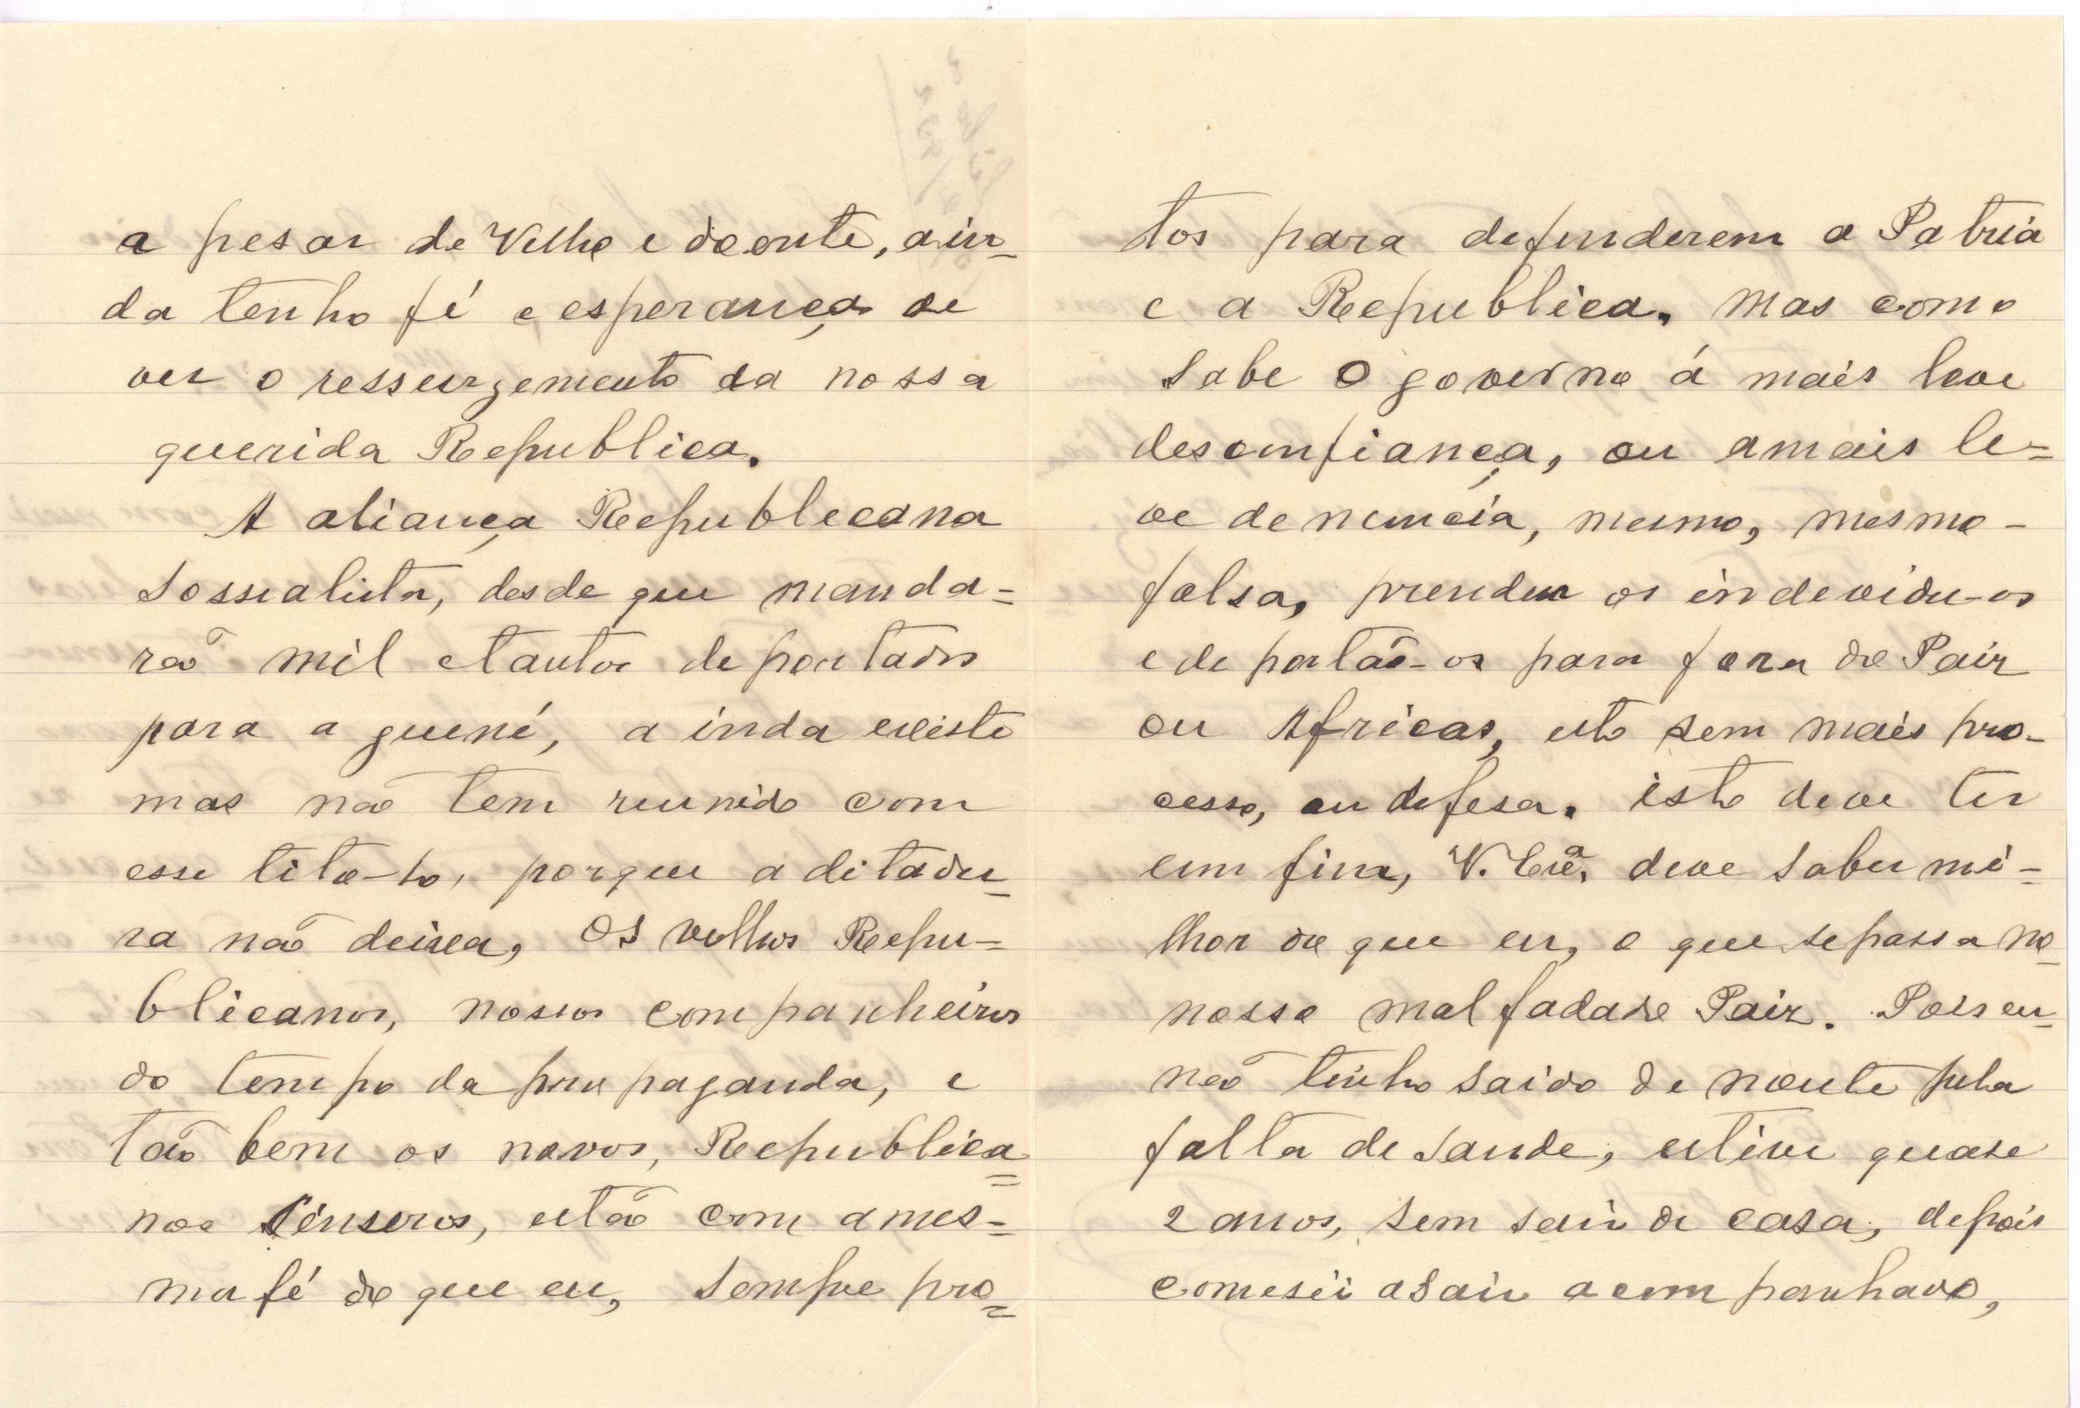 a pesar de Velho e doente, ain-
da tenho fé e esperança de
ver o ressurgemento da nossa
querida Republica.
A aliança Republecana
Sossealista, desde que manda=
rão mil e tantos deportados
para a guené, a inda existe
mas não tem reunido com
esse tito-lo, porque a ditadu-
ra não deixa, Os velhos Repu=
blicanos, nossos companheiros
do tempo da propaganda, e
tão bem os novos, Republica=
nos Sinseros, estão com a mes=
ma fé do que eu, Sempre pro=
tos para defenderem a Patria
e a Republica. Mas como
Sabe O governo á mais leve
desconfiança, ou amais le=
ve denuncia, mesmo, mesmo-
falsa, prendem os indeviduos
e deportão-os para fora do Paiz
ou Africas, isto sem mais pro-
cesso, ou defesa. isto deve ter
um fim, V. Exª. deve Saber mi-
lhor do que eu, o que se passa no-
nosso mal fadado Paiz. Pois eu-
não tenho Saido de noute pela
falta de Saude, estive quase
2 anos, Sem Sair de casa, depois
comesei a Sair acompanhado,